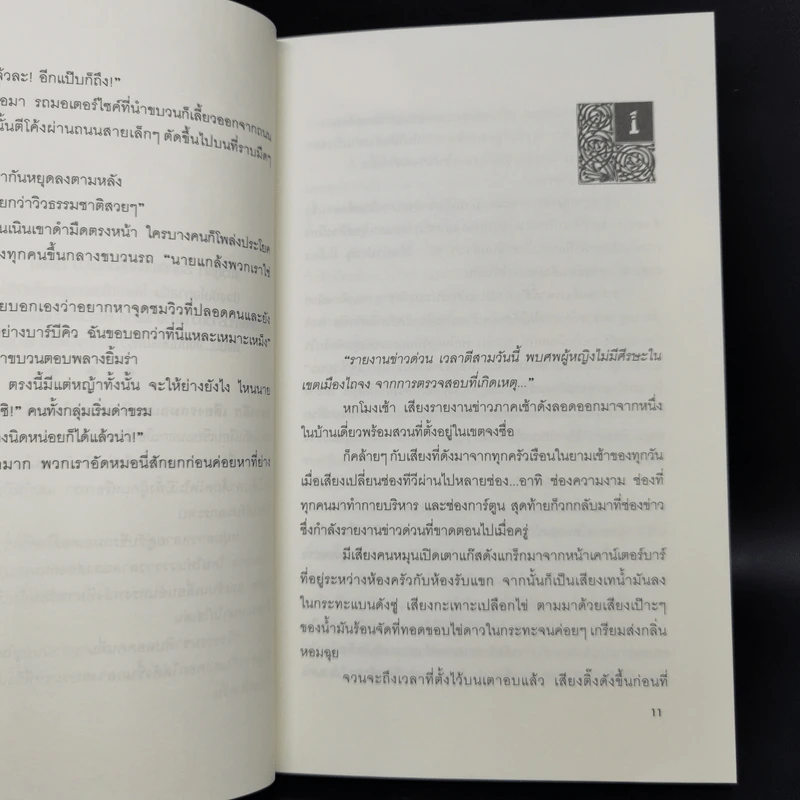 ล้วละ! อีกแป๊บก็ถึง!”
อมา รถมอเตอร์ไซค์ที่นำขบวนก็เลี้ยวออกจากถนน
นั้นตีโค้งผ่านถนนสายเล็กๆ ตัดขึ้นไปบนที่ราบมืดๆ
ากันหยุดลงตามหลัง
ยกว่าวิวธรรมชาติสวยๆ”
นเนินเขาดำมืดตรงหน้า ใครบางคนก็โพล่งประโยค
งทุกคนขึ้นกลางขบวนรถ “นายแกล้งพวกเราใช่
ยบอกเองว่าอยากหาจุดชมวิวที่ปลอดคนและยัง
ย่างบาร์บีคิว ฉันขอบอกว่าที่นี่แหละเหมาะเหม็ง”
าขบวนตอบพลางยิ้มร่า
ตรงนี้มีแต่หญ้าทั้งนั้น จะให้ย่างยังไง ไหนนาย
ซิ!” คนทั้งกลุ่มเริ่มด่าขรม
งนิดหน่อยก็ได้แล้วน่า!”
ามาก พวกเราอัดหมอนี่สักยกก่อนค่อยหาที่ย่าง
1
“รายงานข่าวด่วน เวลาตีสามวันนี้ พบศพผู้หญิงไม่มีศีรษะใน
เขตเมืองไถจง จากการตรวจสอบที่เกิดเหตุ...”
หกโมงเช้า เสียงรายงานข่าวภาคเช้าดังลอดออกมาจากหนึ่ง
ในบ้านเดี่ยวพร้อมสวนที่ตั้งอยู่ในเขตจงซื่อ
ก็คล้ายๆ กับเสียงที่ดังมาจากทุกครัวเรือนในยามเช้าของทุกวัน
เมื่อเสียงเปลี่ยนช่องทีวีผ่านไปหลายช่อง...อาทิ ช่องความงาม ช่องที่
ทุกคนมาทำกายบริหาร และช่องการ์ตูน สุดท้ายก็วกกลับมาที่ช่องข่าว
ซึ่งกำลังรายงานข่าวด่วนที่ขาดตอนไปเมื่อครู่
มีเสียงคนหมุนเปิดเตาแก๊สดังแกร็กมาจากหน้าเคาน์เตอร์บาร์
ที่อยู่ระหว่างห้องครัวกับห้องรับแขก จากนั้นก็เป็นเสียงเทน้ำมันลง
ในกระทะแบนดังซู่ เสียงกะเทาะเปลือกไข่ ตามมาด้วยเสียงเป๊าะๆ
ของน้ำมันร้อนจัดที่ทอดขอบไข่ดาวในกระทะจนค่อยๆ เกรียมส่งกลิ่น
หอมฉุย
จวนจะถึงเวลาที่ตั้งไว้บนเตาอบแล้ว เสียงติ๊งดังขึ้นก่อนที่
11